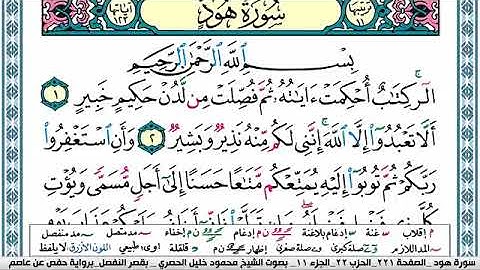 ترتيبها ١١
سُورَةُ هُودٍ
آياتها ١٢٣
بِسْمِ اللَّهِ الرَّحْمَٰنِ الرَّحِيمِ
الٓر ۚ كِتَٰبٌ أُحْكِمَتْ ءَايَٰتُهُۥ ثُمَّ فُصِّلَتْ مِن لَّدُنْ حَكِيمٍ خَبِيرٍ ١
أَلَّا تَعْبُدُوٓا۟ إِلَّا ٱللَّهَ ۚ إِنَّنِى لَكُم مِّنْهُ نَذِيرٌ وَبَشِيرٌ ٢ وَأَنِ ٱسْتَغْفِرُوا۟
رَبَّكُمْ ثُمَّ تُوبُوٓا۟ إِلَيْهِ يُمَتِّعْكُم مَّتَٰعًا حَسَنًا إِلَىٰٓ أَجَلٍ مُّسَمًّى وَيُؤْتِ
م إقلاب غنة إدغام بلاغنة ن م إدغام ن م إخفاء مد متصل مد منفصل
المد اللازم صلة كبرى صلة صغرى إظهار ن م قلقلة اوى طبيعي اللون الأزرق لا يلفظ
سورة هود _ الصفحة ٢٢١_ الحزب ٢٢_ الجزء ١١ _ بصوت الشيخ محمود خليل الحصري _ بقصر المنفصل_برواية حفص عن عاصم